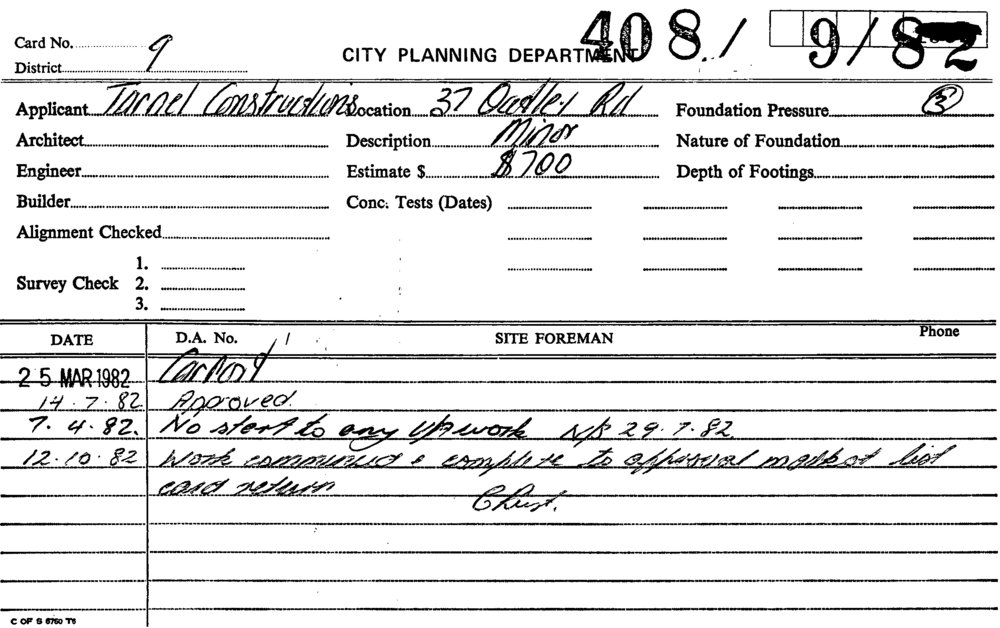 408/ 9/82
Card No. 9
CITY PLANNING DEPARTMENT
District
Applicant Tarnel Constructions Location 37 Oatley Rd Foundation Pressure 3
Architect Description Minor Nature of Foundation
Engineer Estimate $ $700 Depth of Footings
Builder Conc. Tests (Dates)
Alignment Checked
1.
Survey Check 2.
3.
DATE D.A. No. / SITE FOREMAN Phone
25 MAR 1982 Carport
14.7.82 Approved.
7.4.82. No start to any work N/S 29.7.82
12.10.82 Work commenced & complete to approval list
card return
C OF S 6760 T6